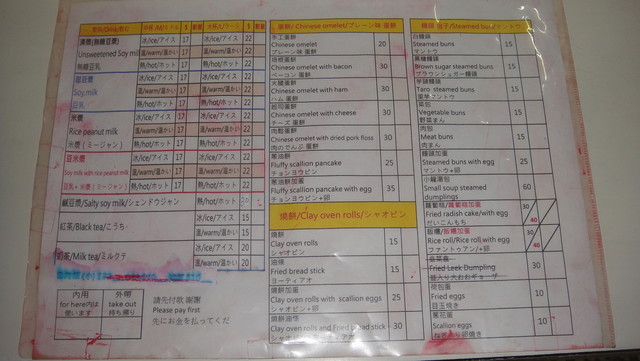 冰/ice/アイス 17 冰/ice/アイス 22
Unsweetened Soy mil 溫/warm/温かい 17 溫/warm/温かい 22
無糖豆乳 熱/hot/ホット 17 熱/hot/ホット 22
冰/ice/アイス 17 冰/ice/アイス 22
Soy milk 溫/warm/温かい 17 溫/warm/温かい 22
豆乳 熱/hot/ホット 17 熱/hot/ホット 22
冰/ice/アイス 17 冰/ice/アイス 22
Rice peanut milk 溫/warm/温かい 17 溫/warm/温かい 22
米漿(ミージャン) 熱/hot/ホット 17 熱/hot/ホット 22
豆米漿 冰/ice/アイス 17 冰/ice/アイス 22
Soy milk with rice peanut milk 溫/warm/温かい 17 溫/warm/温かい 22
豆乳+米漿(ミージャン) 熱/hot/ホット 17 熱/hot/ホット 22
鹹豆漿/Salty soy milk/シェンドウジャン 熱/hot/ホット
紅茶/Black tea/こうち 冰/ice/アイス 15
溫/warm/温かい 15
奶茶/Milk tea/ミルクテ 冰/ice/アイス 20
溫/warm/温かい 20
內用 外帶
for here take out
使います 持ち帰り
請先付款 謝謝
Please pay first
先にお金を払ってくだ
蛋餅/ Chinese omelet/プレーン味 蛋餅
手工蛋餅
Chinese omelet 20
プレーン味 蛋餅
培根蛋餅
Chinese omelet with bacon 30
ベーコン 蛋餅
火腿蛋餅
Chinese omelet with ham 30
ハム 蛋餅
起司蛋餅
Chinese omelet with cheese 30
チーズ 蛋餅
肉鬆蛋餅
Chinese omelet with dried pork floss 30
肉のでんぶ 蛋餅
蔥油餅
Fluffy scallion pancake 25
チョンヨウビン
蔥油餅加蛋
Fluffy scallion pancake with egg 35
チョンヨウビン+卵
燒餅/Clay oven rolls/シャオビン
燒餅
Clay oven rolls 15
シャオビン
油條
Fried bread stick 15
ヨーティアオ
燒餅加蛋
Clay oven rolls with scallion eggs 25
シャオビン+卵
燒餅油條
Clay oven rolls and Fried bread stick 30
饅頭 包子/Steamed bun/マントウ
白饅頭
Steamed buns 15
マントウ
黑糖饅頭
Brown sugar steamed buns 15
ブラウンシュガー饅頭
芋頭饅頭
Taro steamed buns 15
菜包
Vegetable buns 15
野菜まん
肉包
Meat buns 15
肉まん
饅頭加蛋
Steamed buns with egg 25
マントウ+卵
小籠湯包
Small soup steamed dumplings 60
蘿蔔糕/蘿蔔糕加蛋
Fried radish cake/with egg 30 40
だいこんもち
飯糰/飯糰加蛋
Rice roll/Rice roll with egg 30 40
ファントゥアン/+卵
Fried Leek Dumpling 30
荷包蛋
Fried eggs 10
目玉焼き
蔥花蛋
Scallion eggs 10